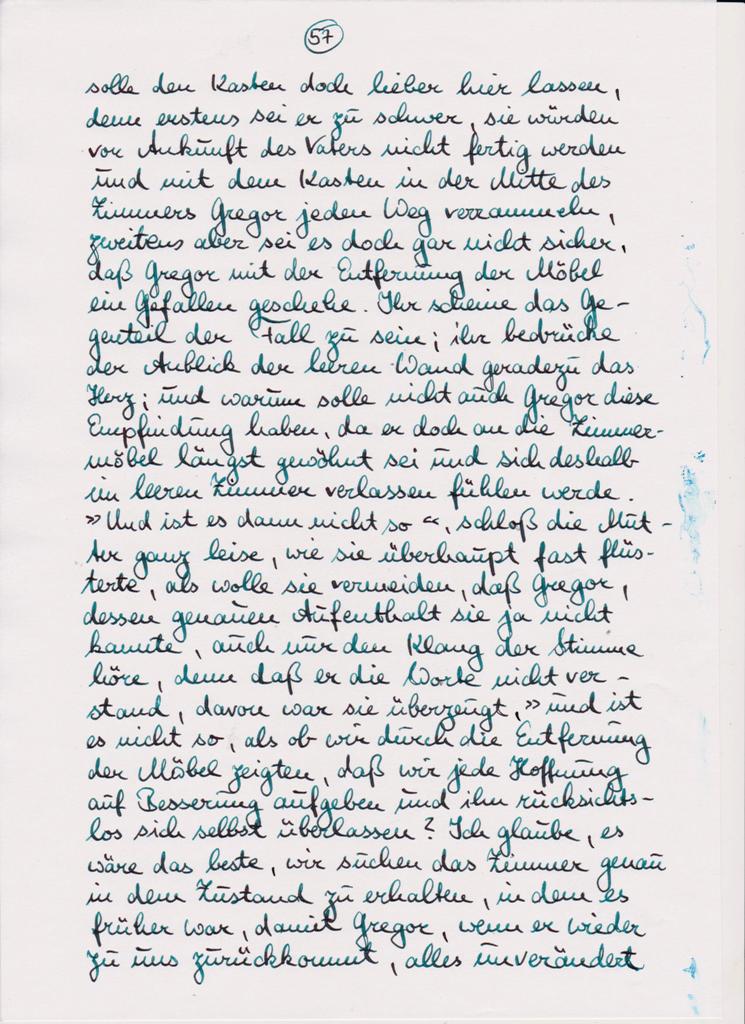 57
solle den Kasten doch lieber hier lassen,
denn erstens sei er zu schwer, sie würden
vor Ankunft des Vaters nicht fertig werden
und mit dem Kasten in der Mitte des
Zimmers Gregor jeden Weg verrammeln,
zweitens aber sei es doch gar nicht sicher,
daß Gregor mit der Entfernung der Möbel
ein Gefallen geschehe. Ihr scheine das Ge-
genteil der Fall zu sein; ihr bedrücke
der Anblick der leeren Wand geradezu das
Herz; und warum solle nicht auch Gregor diese
Empfindung haben, da er doch an die Zimmer-
möbel längst gewöhnt sei und sich deshalb
im leeren Zimmer verlassen fühlen werde.
»Und ist es dann nicht so«, schloß die Mut-
ter ganz leise, wie sie überhaupt fast flüs-
terte, als wolle sie vermeiden, daß Gregor,
dessen genauen Aufenthalt sie ja nicht
kannte, auch nur den Klang der Stimme
höre, denn daß er die Worte nicht ver-
stand, davon war sie überzeugt, »und ist
es nicht so, als ob wir durch die Entfernung
der Möbel zeigten, daß wir jede Hoffnung
auf Besserung aufgeben und ihn rücksichts-
los sich selbst überlassen? Ich glaube, es
wäre das beste, wir suchen das Zimmer genau
in dem Zustand zu erhalten, in dem es
früher war, damit Gregor, wenn er wieder
zu uns zurückkommt, alles unverändert